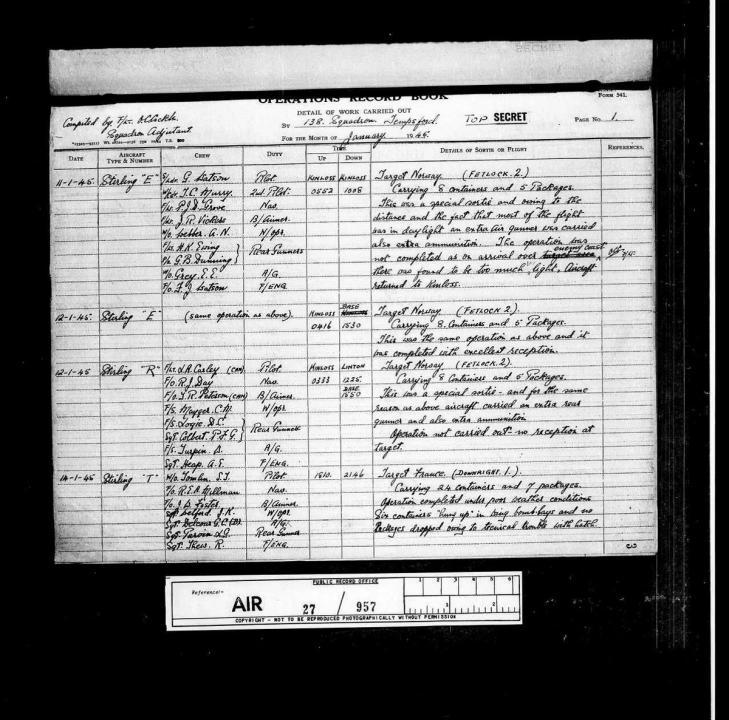 SECRET
OPERATIONS RECORD BOOK
FORM 541.
Compiled by F/Lt.
Squadron Adjutant
DETAIL OF WORK CARRIED OUT
By 138. Squadron. Tempsford.
TOP SECRET
PAGE No 1.
FOR THE MONTH OF January. 1945.
DATE AIRCRAFT TYPE & NUMBER CREW DUTY TIME UP DOWN DETAILS OF SORTIE OR FLIGHT REFERENCES.
11-1-45. Stirling "E" S/Ldr. G. Watson Pilot KINLOSS KINLOSS Target Norway (FETLOCK. 2.)
T.C. Murry. 2nd Pilot 0552 1008 Carrying 8 Containers and 5 Packages.
P.J.D. Grove Nav. This was a special sortie and owing to the
J.R. Vickers B/Aimer. distance and the fact that most of the flight
A.N. W/Opr. was in daylight an extra air gunner was carried
H.K. Ewing } Rear Gunners also extra ammunition. The operation was
G.B. Dunning } not completed as on arrival over target area enemy coast
W/O. Grey. E.E A/G. there was found to be too much light. Aircraft
F/O. F.J Watson F/ENG. returned to Kinloss.
12-1-45. Stirling "E" (same operation as above). KINLOSS BASE Target Norway (FETLOCK 2.)
0416 1530 Carrying 8 Containers and 5 Packages.
This was the same operation as above and it
was completed with excellent reception.
12-1-45. Stirling "R" Curley (CAN) Pilot KINLOSS LINTON Target Norway (FETLOCK. 2)
F/O. R.J. Day Nav. 0333 1225. Carrying 8 Containers and 5 Packages.
F/O. J.R. Paterson (CAN) B/Aimer. BASE 1550 This was a special sortie - and for the same
F/S. C.M. W/Opr. reason as above aircraft carried an extra rear
F/S. Logie. D.C. } Rear Gunners gunner and also extra ammunition
Sgt. Colbert. P.F.G. } Operation not carried out - no reception at
F/S. Turpin. A/G. target.
Sgt. Heap. A.E. F/ENG.
14-1-45 Stirling "T" W/O. Tomlin. S.J. Pilot 1810. 2146 Target France. (DOWNRIGHT. 1.).
F/O. R.E.A. Millman Nav. Carrying 24 containers and 7 packages.
F/O. J.D. Foster B/Aimer Operation completed under poor weather conditions
J.K. W/Opr. Six containers "hung up" in wing bomb bays and no
Sgt. A/G. Packages dropped owing to tecnical trouble with hatch.
Sgt. L.G. Rear Gunner
Sgt. Thew. R. F/ENG.
PUBLIC RECORD OFFICE
Reference:-
AIR 27 / 957
1 2 3 4 5 6
1 2
COPYRIGHT - NOT TO BE REPRODUCED PHOTOGRAPHICALLY WITHOUT PERMISSION